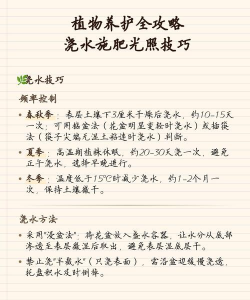 植物养护全攻略
浇水施肥光照技巧
浇水技巧
频率控制
春秋季：表层土壤下3厘米干燥后浇水，约10-15天
一次；可用掂盆法（花盆明显变轻时浇水）或插筷
法（筷子尖端无湿土粘连时浇水）判断。
夏季：高温期植株休眠，约20-30天浇一次，避免
正午浇水，选择早晚进行。
冬季：温度低于15℃时减少浇水，约1-2个月一
次，保持土壤微干。
浇水方法
采用"浸盆法"：将花盆放入盛水容器，让水分从底部
渗透至表层微湿后取出，避免表层湿底层干。
禁止浇"半截水"（只浇表面），需沿盆边缓慢浇透，
托盘积水及时倒掉。